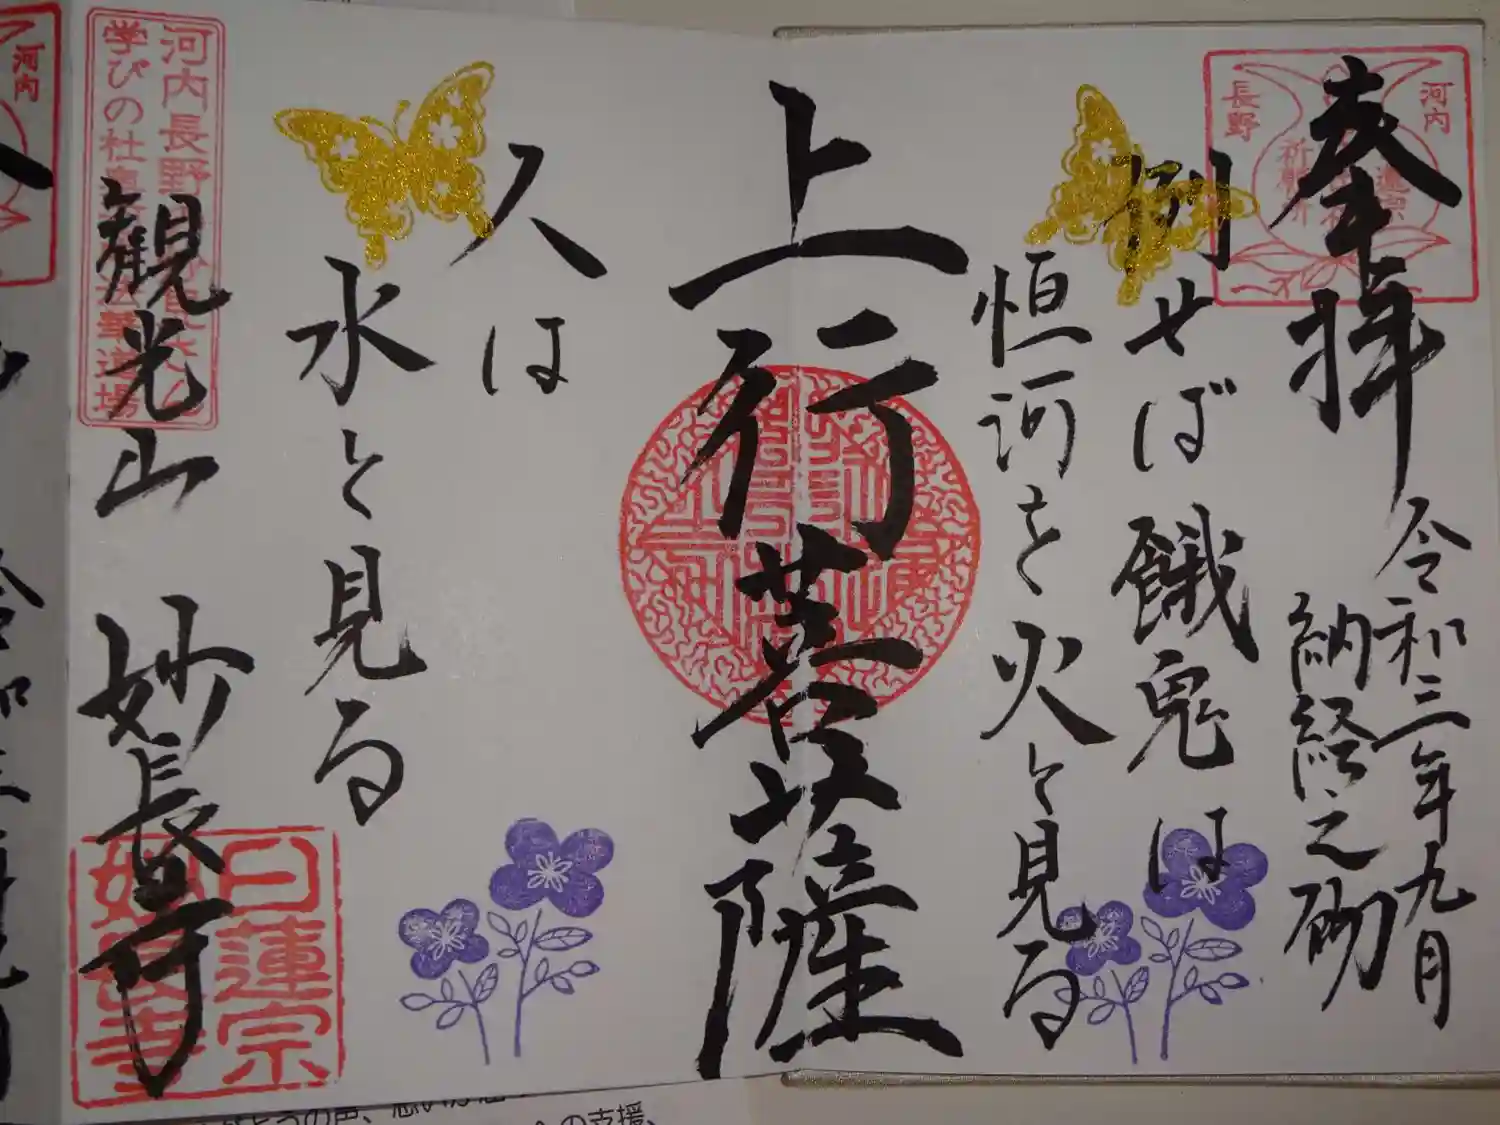 奉拝
令和三年九月
納経之砌
河内
長野
祈願所
例せば餓鬼は
恒河を火と見る
上行菩薩
人は
水と見る
観光山 妙長寺
河内長野
学びの杜
法華道場
日蓮宗
妙長寺
河内